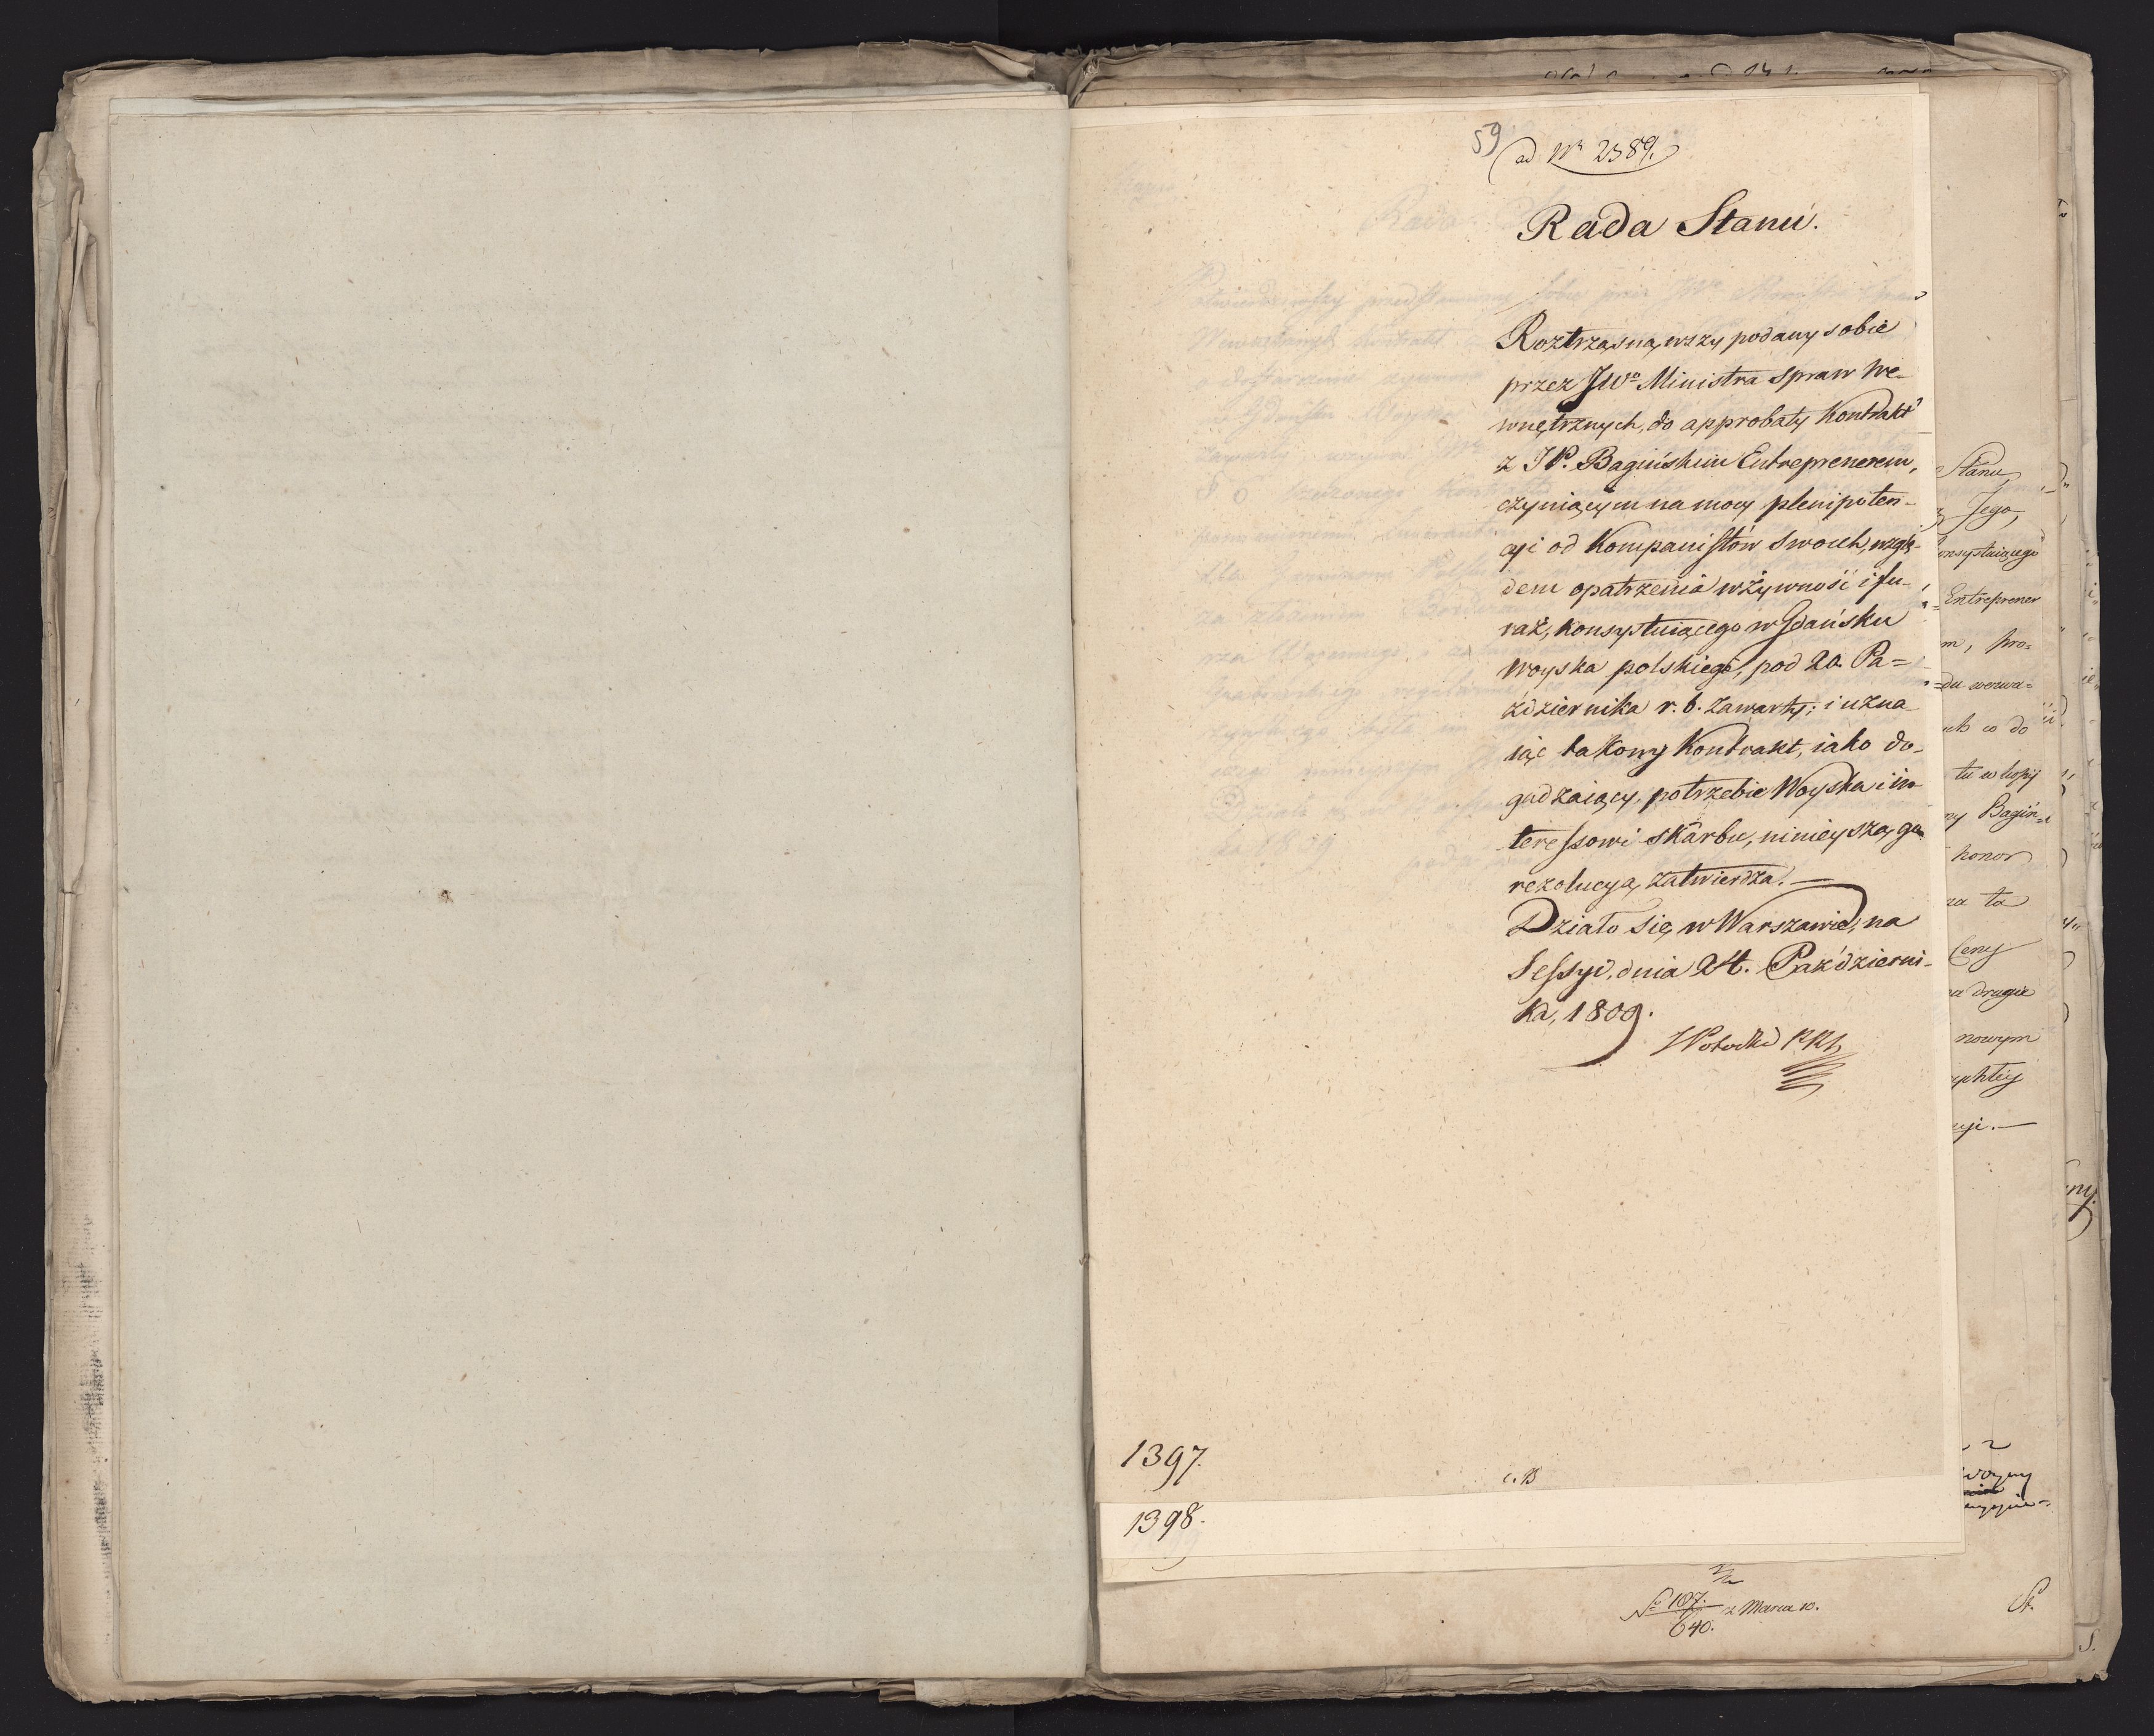 59
ad Nr 2389.
Rada Stanu.
Roztrząsnąwszy podany sobie
przez JWo Ministra Spraw We-
wnętrznych, do approbaty Kontrakt
z JP. Bagińskim Entreprenerem,
czyniącym na mocy plenipoten-
cyi od Kompanistów swoich, wzglę-
dem opatrzenia w żywność i fu-
raż, konsystuiącego w Gdańsku
Woyska polskiego, pod 20. Pa=
ździernika r. b. zawarty; i uzna-
iąc takowy Kontrakt, iako do-
gadzaiący, potrzebie Woyska i in-
teressowi skarbu, ninieyszą go
rezolucyą zatwierdza.—
Działo się w Warszawie, na
Sessyi, dnia 24. Październi-
ka, 1809.
1397.
c. 13
1398.
Stanu,
Jego,
onsystuiącego
Entreprener
m, pro=
du wezwa=
ch co do
tu w kopij
ny Bagiń=
honor
na ta
Ceny
na drugie
nowym
cyi.—
No 107.
640.
z Marca 10.